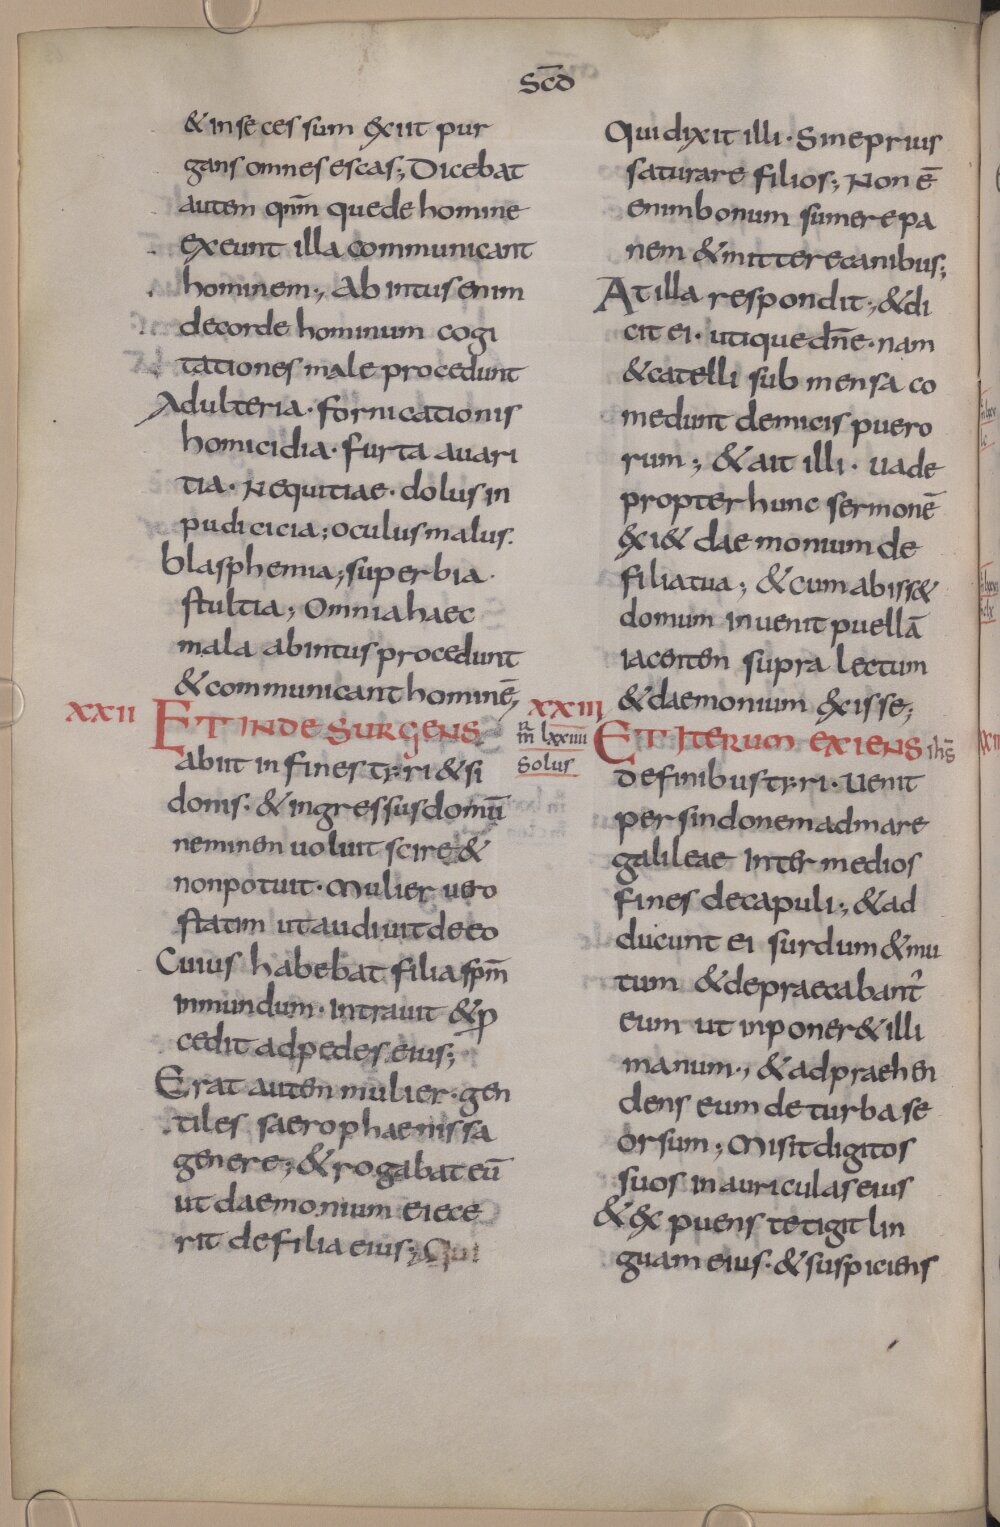 Scd̄
& in secessum exiit pur
gans omnes escas; Dicebat
autem qnm̄ que de homine
exeunt illa communicant
hominem; Ab intus enim
de corde hominum cogi
tationes male procedunt
Adulteria · fornicationis
homicidia · furta avari
tia · Nequitiae · dolus in
pudicicia; oculus malus ·
blasphemia; superbia ·
stultia; Omnia haec
mala ab intus procedunt
& communicant hominē;
XXII ET INDE SURGENS
abiit in fines tyri & si
donis · & ingressus domū
neminem voluit scire &
non potuit · Mulier vero
statim ut audivit de eo
Cuius habebat filia spm̄
inmundum · intravit & ꝓ
cedit ad pedes eius;
Erat autem mulier · gen
tiles saerophaenissa
genere; & rogabat eū
ut daemonium eiece
rit de filia eius; Qui
Qui dixit illi · Sine prius
saturare filios; Non ē
enim bonum sumere pa
nem & mittere canibus;
At illa respondit; & di
cit ei · utique dn̄e · nam
& catelli sub mensa co
medunt de micis puero
rum; & ait illi · vade
propter hunc sermonē
exi& daemonium de
filia tua; & cum abiss&
domum invenit puellā
iacentem supra lectum
& daemonium exisse;
XXIII
m̄ lxxiiii
Solus
ET ITERUM EXIENS ihs̄
de finibus tyri · venit
per sindonem ad mare
galileae inter medios
fines decapuli; & ad
ducunt ei surdum & mu
tum & depraecabant̄
eum ut inponer& illi
manum; & adpraehen
dens eum de turba se
orsum; Misit digitos
suos in auriculas eius
& expuens tetigit lin
guam eius · & suspiciens